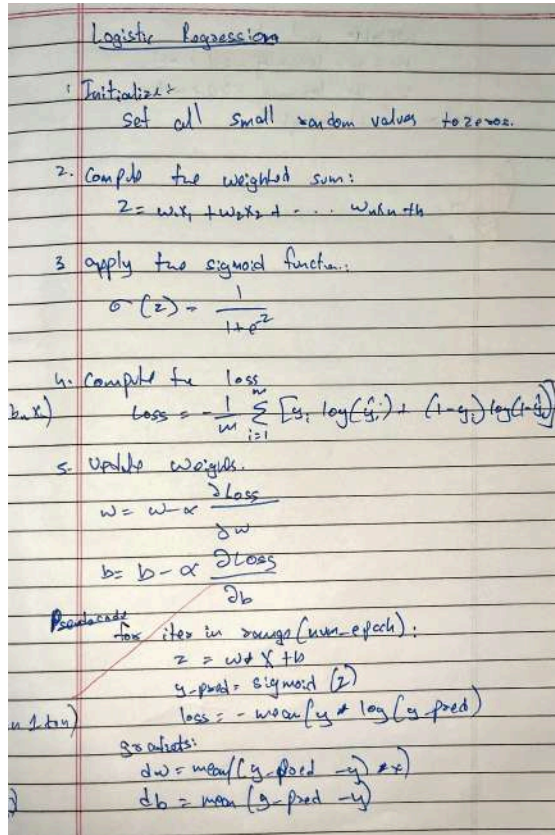 Logistic Regression
1 Initialize:
Set all small random values to zeros.
2. Compute the weighted sum:
z = w₁x₁ + w₂x₂ + .... wₙxₙ + b
3 apply the sigmoid function:
σ(z) = 1 / 1+e^-z
4. Compute the loss
bₙxₙ) Loss = -1/m Σ i=1 m [yᵢ log(ŷᵢ) + (1-yᵢ) log(1-ŷᵢ)]
5. Update weights.
w = w - α ∂Loss / ∂w
b = b - α ∂Loss / ∂b
Pseudocode
for iter in range (num_epoch):
z = w * X + b
y-pred = sigmoid (z)
loss = - mean (y * log (y-pred)
gradients:
dw = mean((y-pred - y) * x)
db = mean (y-pred - y)